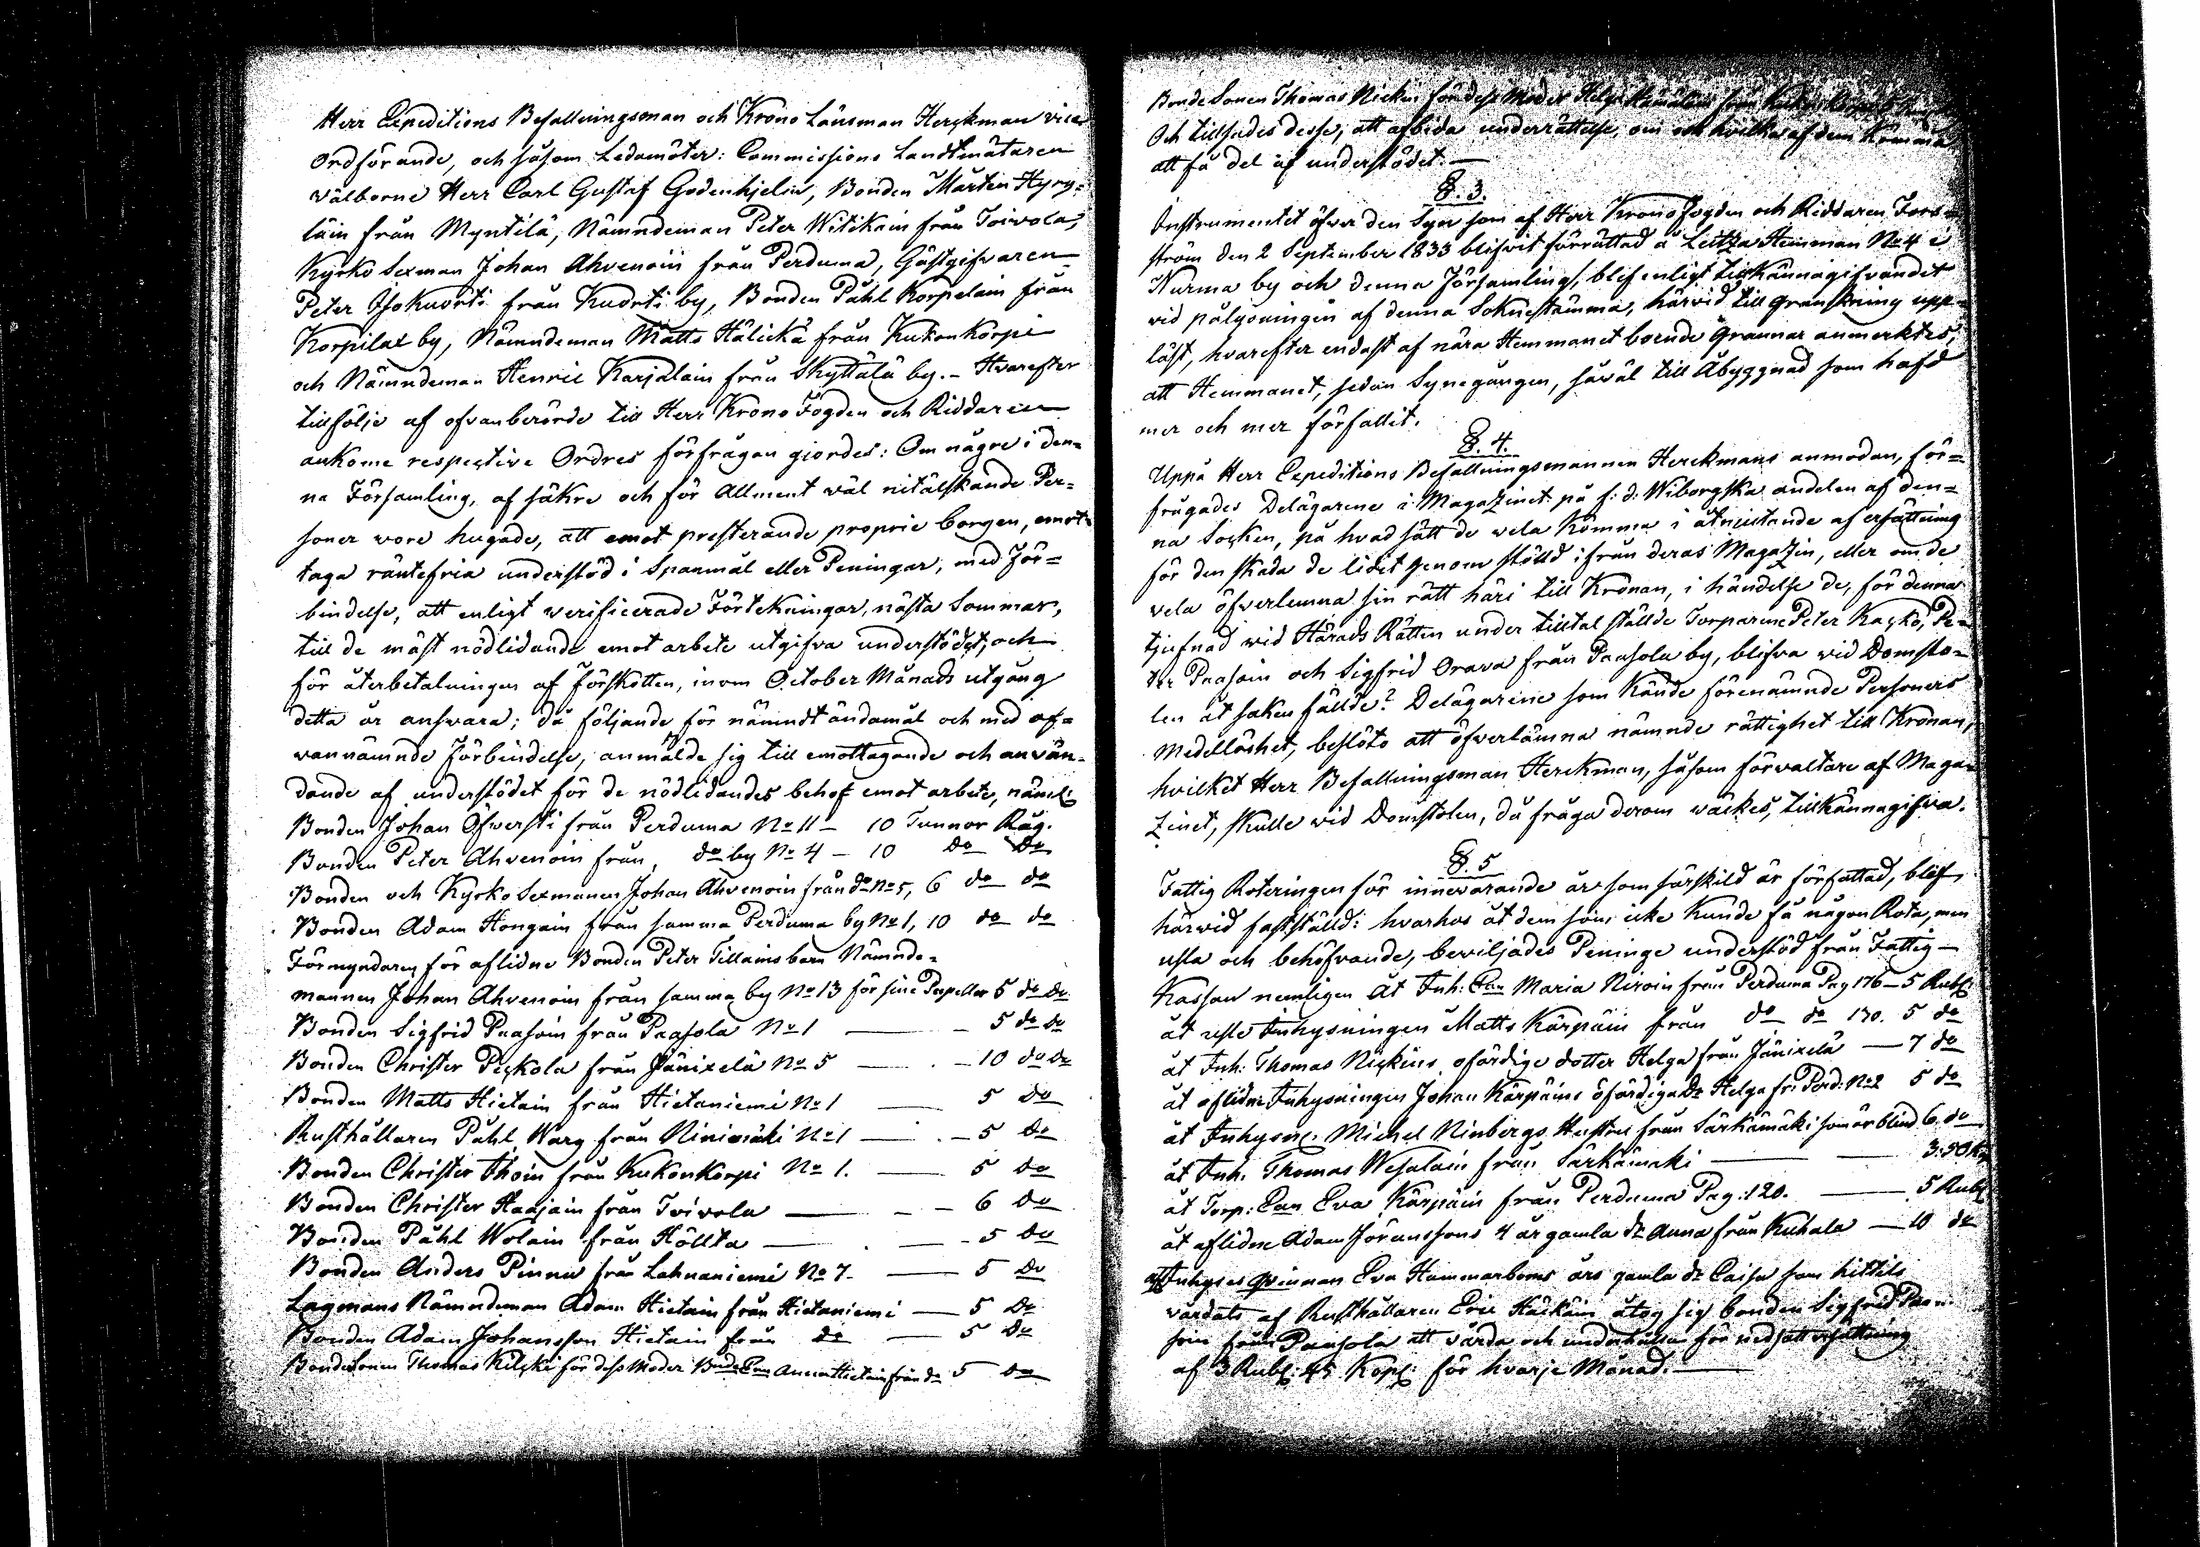 Herr Expeditions Befallningsman och Krono Länsman Herckman vice
Ordförande, och såsom Ledamöter: Commissions Landtmätaren
wälborne Herr Carl Gustaf Godenhjelm, Bonden Mårten Hyry-
läin från Myntilä, Nämndeman Peter Witikain från Toivola,
Kyrko Sexman Johan Ahvenoin från Perduma, Gästgifvaren
Peter Isokuorti från Kuorti by, Bonden Påhl Korpelain från
Korpilax by, Nämndeman Matts Hälickä från Kukonkorpi
och Nämndeman Henric Karjalain från Skyttälä by. - Hvarefter
tillfölje af ofvanberörde till Herr Krono Fogden och Riddaren
ankomne respective Ordres förfrågan giordes: Om någre i den-
na Församling, af säkre och för Allment wäl nitälskande Per-
soner wore hugade, att emot presterande proprie borgen, emot-
taga räntefria understöd i Spanmål eller Peningar, med För-
bindelse, att enligt verificerade Förtekningar, nästa Sommar,
till de mäst nödlidande emot arbete utgifva understödet, och
för återbetalningen af Förskotten, inom October Månads utgång
detta år ansvara; då följande för nämndt ändamål och med of-
vannämnde Förbindelse, anmälde sig till emottagande och använ-
dande af understödet för de nödlidandes behof emot arbete, näml:
Bonden Johan Öfwersti från Perduma No 11 - 10 Tunnor Råg.
Bonden Peter Ahvenoin från do by No 4 - 10 do do
Bonden och Kyrko Sexmanen Johan Ahvenoin från do No 5, 6 do do
Bonden Adam Hongain från samma Perduma by No 1, 10 do do
Förmyndaren för aflidne Bonden Peter Tillains barn Nämnde-
mannen Johan Ahvenoin från samma by No 13 för sine Pupiller 5 do do
Bonden Sigfrid Paasoin från Paasola No 1 — 5 do do
Bonden Christer Peckola från Jänixelä No 5 — 10 do do
Bonden Matts Hietain från Hietaniemi No 1 — 5 do
Rusthållaren Påhl Warg från Ninimäki No 1 — 5 do
Bonden Christer Thoin från Kukonkorpi No 1. — 5 do
Bonden Christer Haajain från Toivola — 6 do
Bonden Påhl Wolain från Höltta — 5 do
Bonden Anders Pinnu från Lahnaniemi No 7. — 5 do
Lagmans Nämndeman Adam Hietain från Hietaniemi — 5 do
Bonden Adam Johansson Hietain från do — 5 do
Bondesonen Thomas för dess Moder Anna Hietain från do 5 do
Bonde Sonen Thomas för dess Moder Helga
Och tillsades desse, att afbida underrättelse, om och hvilka af dem komma
att få del af understödet. —
§. 3.
Instrumentet öfver den Syn som af Herr Krono Fogden och Riddaren Fors-
ström den 2 September 1833 blifvit förrättad å Leitza Hemman No 4 i
Nurma by och denna Församling, blef enligt tilkännagifvandet
vid pålysningen af denna Sokne stämma, härvid till granskning upp-
läst, hvarefter endast af nära Hemmanet boende Grannar anmerktes,
att Hemmanet, sedan Synegången, såväl till Åbyggnad som häfd
mer och mer förfallit.
§. 4.
Uppå Herr Expeditions Befallningsmannen Herckmans anmodan, för-
frågades Delägarene i Magazinet på f: d: Wiborgska andelen af den-
na Socken, på hvad sätt de vela komma i åtnjutande af ersättning
för den skada de lidit genom stöld ifrån deras Magazin, eller om de
vela öfverlemna sin rätt häri till Kronan, i händelse de, för denna
tjufnad wid Härads Rätten under tilltal ställde Torparene Peter Kackö, Pe-
ter Paasoin och Sigfrid Orava från Paasola by, blifva vid Domsto-
len åt saken fällde? Delägarene som kände förenämnde Personers
Medellöshet, beslöto att öfverlämna nämnde rättighet till Kronan,
hvilket Herr Befallningsman Herckman, såsom förvaltare af Maga-
zinet, skulle vid Domstolen, då fråga derom väckes, tillkännagifva.
§. 5
Fattig Roteringen för innevarande år som särskild är författad, blef
härvid fastställd: hvarhos åt dem som icke kunde få någon Rota, men
usla och behöfvande, beviljades Peninge understöd från Fattig-
Kassan nemligen åt Inh: Maria Niroin från Perduma Pag 176 - 5 Rubl:
åt usle Inhysningen Matts Kärpäin från do do 130. 5 do
åt Inh: Thomas ofärdige dotter Helga från Jänixelä — 7 do
åt aflidne Inhysningen Johan Kärpäins ofärdiga Dr Helga fr: Perd: No 2 5 do
åt Inhysn: Michel Ninbergs Hustru från Särkämäki som är blind 6 do
åt Inh. Thomas Wesalain från Särkämäki — 3:50 K
åt Torp: Eva Kärpäin från Perduma Pag: 120. — 5 Rubl
åt aflidne Adam Joranssons 4 år gamla dr Anna från Kuhala — 10 do
Inhyses qvinnan Eva Hammarboms års gamla dr Caisa som hittils
vårdats af Rusthållaren Eric åtog sig bonden Sigfrid Paa-
soin från Paasola att vårda och underhålla för nedsatt ersättning
af 3 Rubl: 45 Kop: för hvarje Månad. —